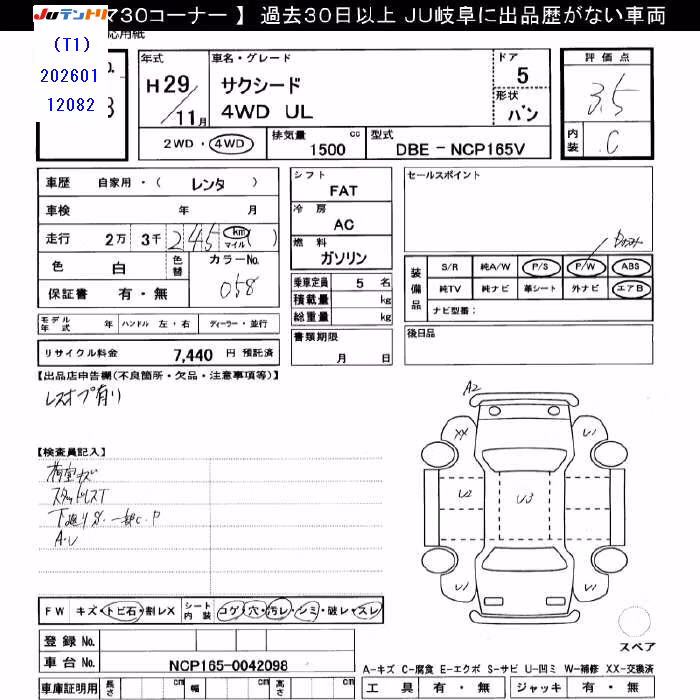 JUテントリ 730コーナー 】 過去30日以上 JU岐阜に出品歴がない車両
(T1)
202601
12082
年式
H29/11月
車名・グレード
サクシード
4WD UL
ドア
5
形状
バン
評価点
3.5
内装
C
2WD・4WD
排気量 1500 cc
型式 DBE-NCP165V
車歴 自家用・( レンタ )
車検 年 月
走行 2万 3千 245 km マイル ( )
色 白
色替
カラーNo. 058
保証書 有・無
モデル年式 年 ハンドル 左・右 ディーラー・並行
リサイクル料金 7,440 円 預託済
シフト
FAT
冷房
AC
燃料
ガソリン
乗車定員 5 名
積載量 kg
総重量 kg
書類期限
月 日
セールスポイント
装備品
S/R 純A/W P/S P/W ABS
純TV 純ナビ 革シート 外ナビ エアB
ナビ型番:
後日品
【出品店申告欄(不良箇所・欠品・注意事項等)】
レスオプ有り
【検査員記入】
荷室キズ
スタッドレスT
下廻りS.一部C.P
A.U
A2
XX
U1
U2
U3
U1
U1
FW キズ・トビ石・割レX
シート内装 コゲ・穴・汚レ・シミ・破レ・スレ
登録 No.
車台 No. NCP165-0042098
車庫証明用 長さ cm 幅 cm 高さ cm
スペア
A-キズ C-腐食 E-エクボ S-サビ U-凹ミ W-補修 XX-交換済
工具 有・無 ジャッキ 有・無